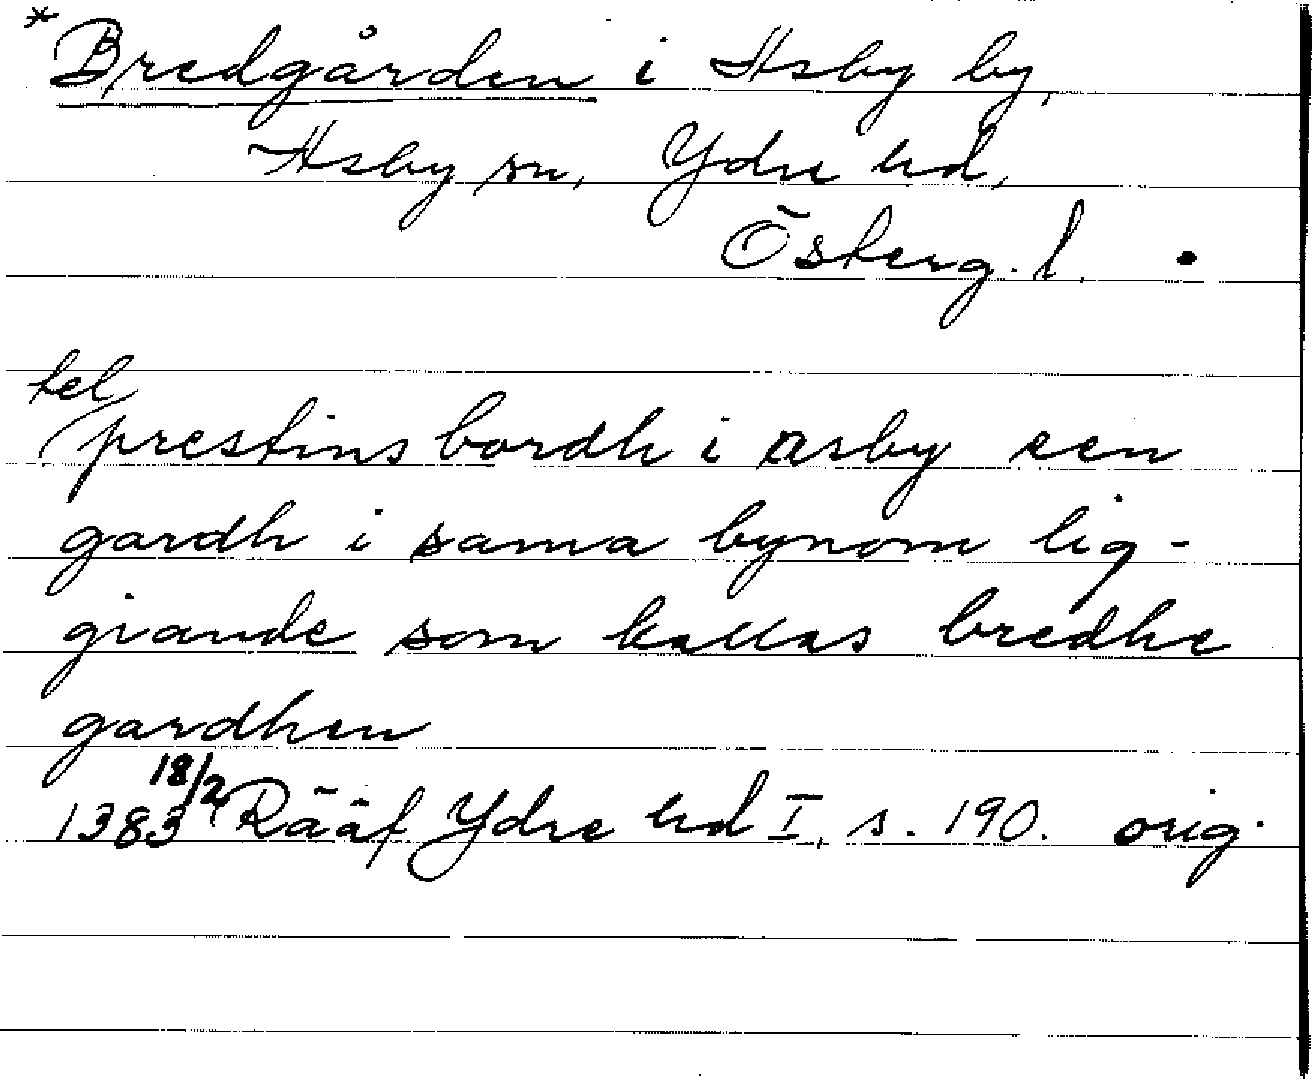 *Bredgården i Asby by,
Asby sn, Ydre hd,
Österg. l. •
tel
prestins bordh i asby een
gardh i sama bynom lig-
giande som kallas bredhe
gardhen
1383 18/2 Rääf Ydre hd I, s. 190. orig.